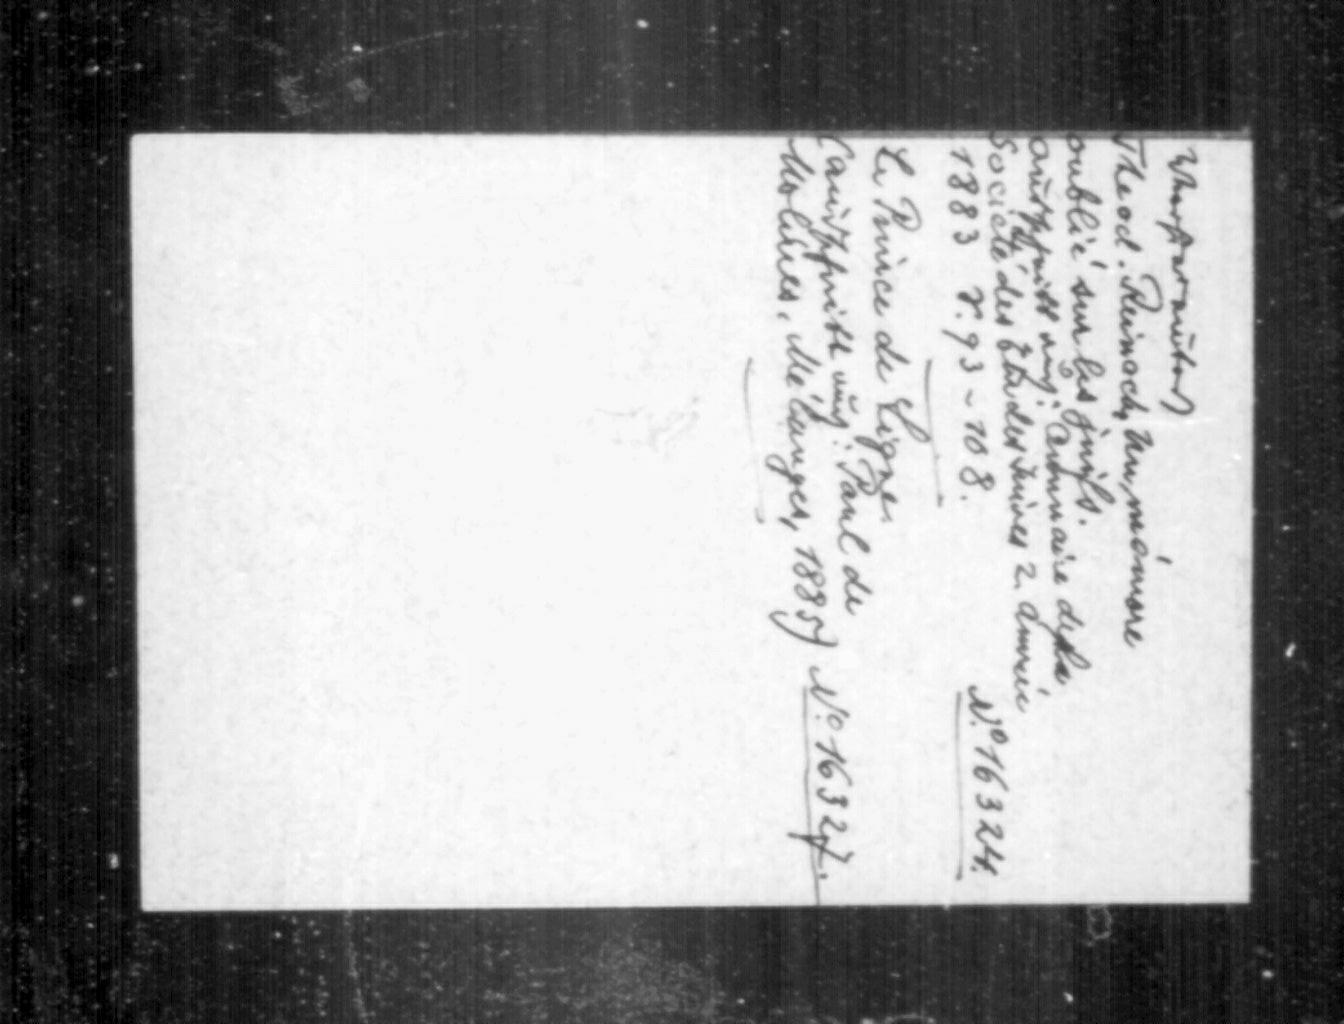 Theod. Reinach, Un mémoire
oublié sur les juifs.
Ausschnitt aus: Annuaire de la
Société des Etudes Juives 2. année
1883 S. 93-108.
N.° 16324.
Le Prince de Ligne.
(Ausschnitt aus: Paul de
Molènes, Mélanges, 1885)
N.° 16327.